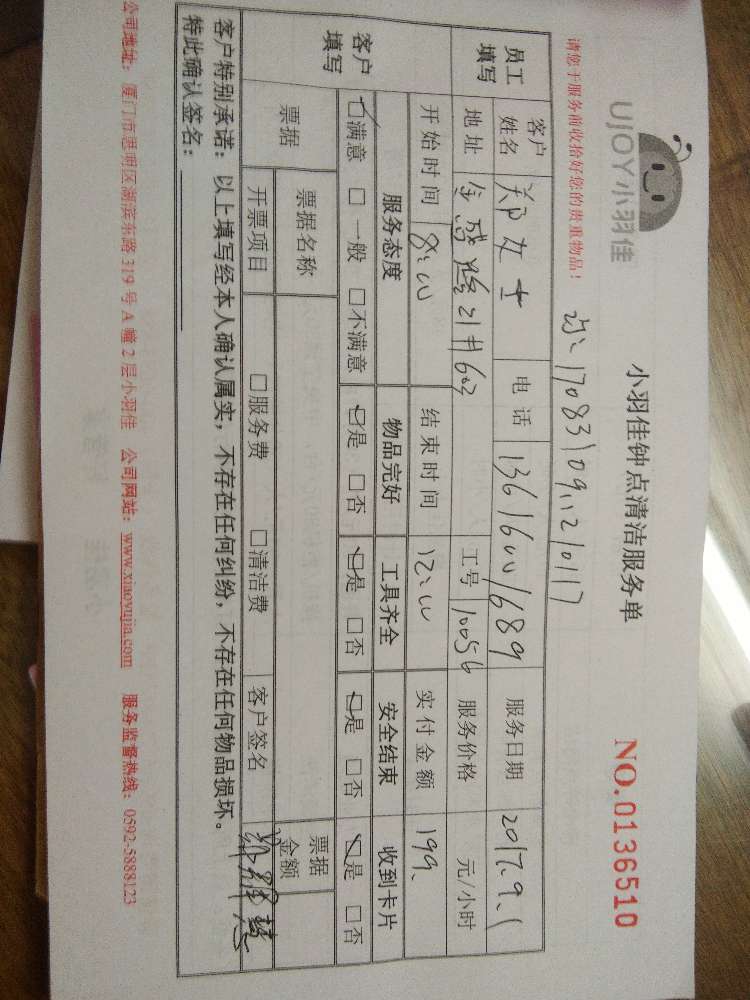 UJOY小羽佳
小羽佳钟点清洁服务单
NO.0136510
请您于服务前收拾好您的贵重物品！
17083109121017
员工填写 客户姓名 郑女士 电话 13616001689 服务日期 2017.9.1
地址 21#602 工号 10056 服务价格 元/小时
开始时间 8:00 结束时间 12:00 实付金额 199.
客户填写 服务态度 物品完好 工具齐全 安全结束 收到卡片
☑满意 □一般 □不满意 ☑是 □否 ☑是 □否 ☑是 □否 ☑是 □否
票据 票据名称 票据金额
开票项目 □服务费 □清洁费 客户签名
客户特别承诺：以上填写经本人确认属实，不存在任何纠纷，不存在任何物品损坏。
特此确认签名：
公司地址：厦门市思明区湖滨东路319号A幢2层小羽佳 公司网站：www.xiaoyujia.com 服务监督热线：0592-5888123